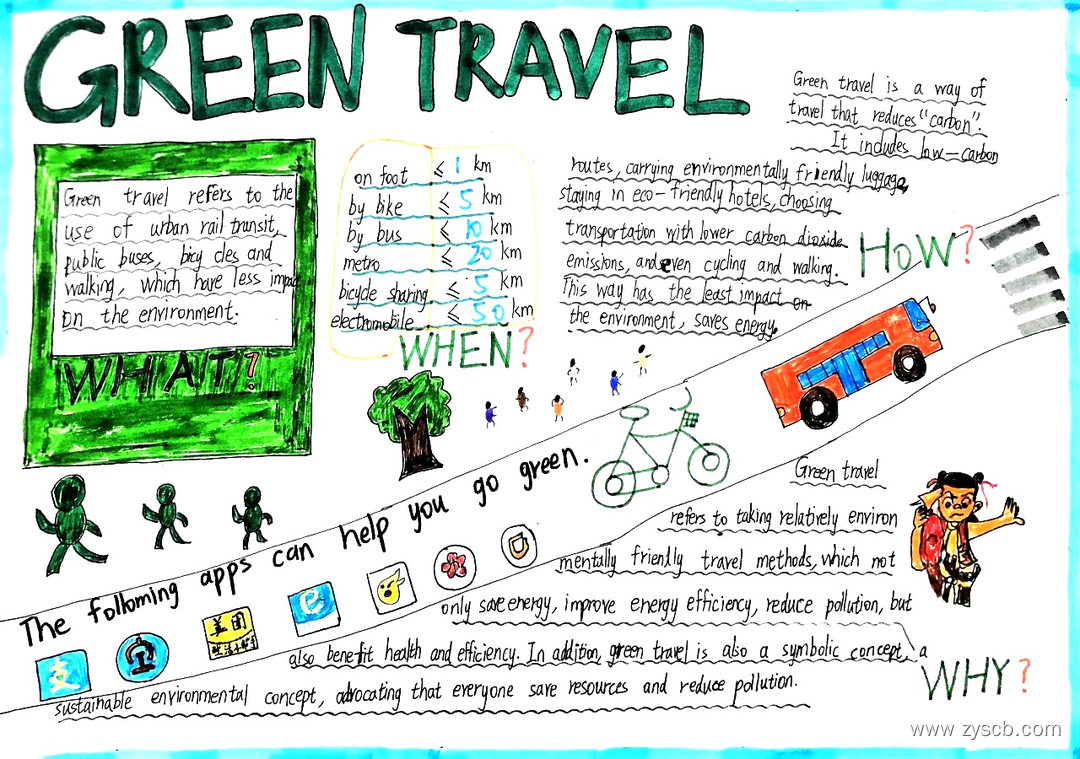 GREEN TRAVEL
Green travel is a way of
travel that reduces "carbon".
It includes low-carbon
routes, carrying environmentally friendly luggage,
staying in eco-friendly hotels, choosing
transportation with lower carbon dioxide
emissions, and even cycling and walking.
This way has the least impact on
the environment, saves energy.
HOW?
Green travel refers to the
use of urban rail transit,
public buses, bicycles and
walking, which have less impact
on the environment.
WHAT?
on foot ≤ 1 km
by bike ≤ 5 km
by bus ≤ 10 km
metro ≤ 20 km
bicycle sharing ≤ 5 km
electromobile ≤ 50 km
WHEN?
The following apps can help you go green.
支
美团
e
Green travel
refers to taking relatively environ
mentally friendly travel methods, which not
only save energy, improve energy efficiency, reduce pollution, but
also benefit health and efficiency. In addition, green travel is also a symbolic concept, a
sustainable environmental concept, advocating that everyone save resources and reduce pollution.
WHY?
www.zyscb.com